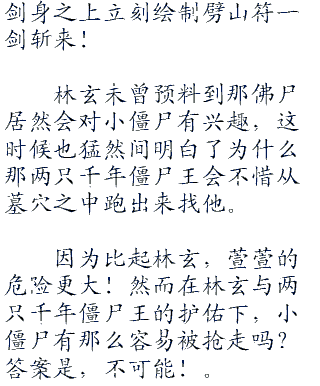 剑身之上立刻绘制劈山符一
剑斩来！
林玄未曾预料到那佛尸
居然会对小僵尸有兴趣，这
时候也猛然间明白了为什么
那两只千年僵尸王会不惜从
墓穴之中跑出来找他。
因为比起林玄，萱萱的
危险更大！然而在林玄与两
只千年僵尸王的护佑下，小
僵尸有那么容易被抢走吗？
答案是，不可能！。